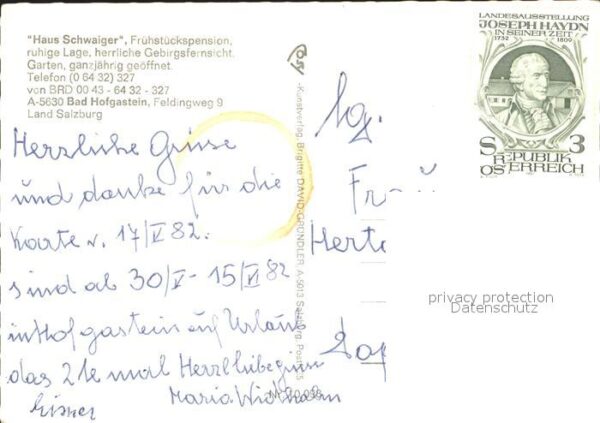 "Haus Schwaiger", Frühstückspension,
ruhige Lage, herrliche Gebirgsfernsicht.
Garten, ganzjährig geöffnet
Telefon (0 64 32) 327
von BRD 00 43 - 64 32 - 327
A-5630 Bad Hofgastein, Feldingweg 9
Land Salzburg
Herzliche Grüsse
und danke für die
Karte v. 17/V 82.
sind ab 30/V - 15/VI 82
in Hofgastein auf Urlaub
das 2te mal Herzliche
Maria
Kunstverlag Brigitte DAVID-GRÜNDLER, A-5013 Salzburg, Postf.
LANDESAUSSTELLUNG
JOSEPH HAYDN
IN SEINER ZEIT
1732 1809
S 3
REPUBLIK
ÖSTERREICH
Fr
privacy protection
Datenschutz